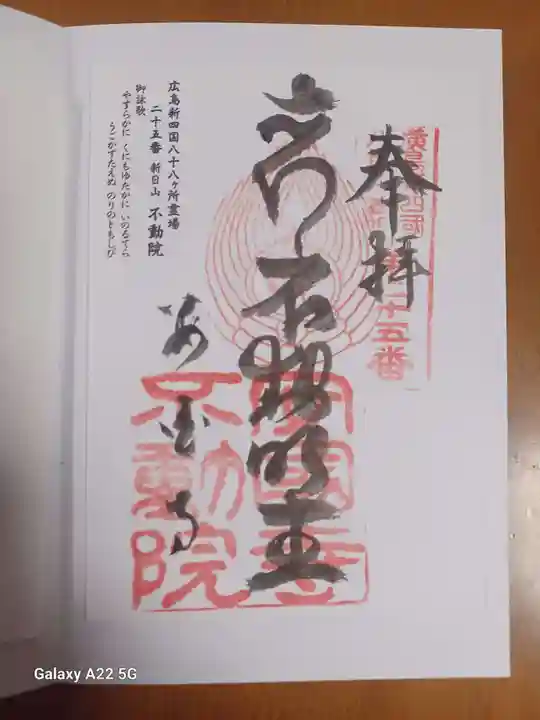 奉拝
廣島新四国
第二十五番
不動明王
安国寺
安國寺
不動院
広島新四国八十八ヶ所霊場
二十五番 新日山 不動院
御詠歌
やすらかに くにもゆたかに いのるてら
うごかずたえぬ のりのともしび
Galaxy A22 5G